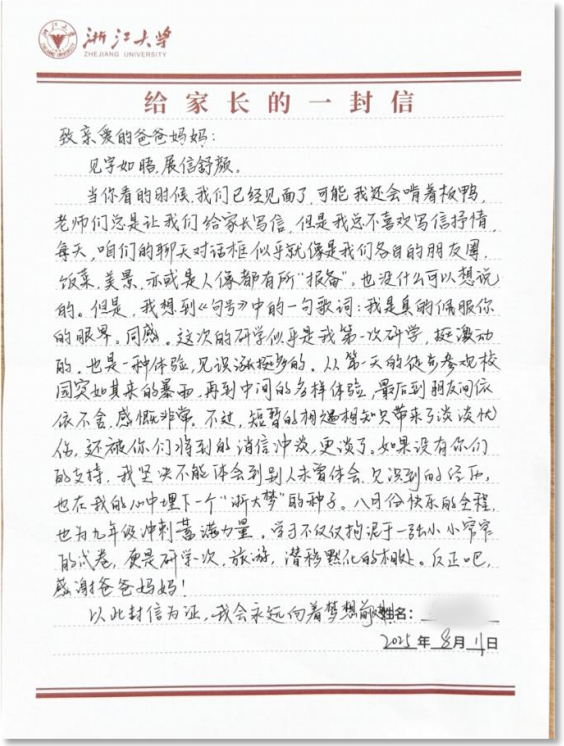 浙江大学
ZHEJIANG UNIVERSITY
给家长的一封信
致亲爱的爸爸妈妈：
见字如晤，展信舒颜。
当你看的时候，我们已经见面了，可能我还会啃着板鸭，
老师们总是让我们给家长写信，但是我总不喜欢写信抒情，
每天，咱们的聊天对话框似乎就像是我们各自的朋友圈，
饭菜、美景、亦或是人像都有所“报备”。也没什么可以想说
的。但是，我想到《句号》中的一句歌词：我是真的佩服你
的眼界。同感。这次的研学似乎是我第一次研学，挺激动
的。也是一种体验，见识挺多的。从第一天的徒步参观校
园突如其来的暴雨，再到中间的各样体验，最后到朋友间依
依不舍，感慨非常。不过，短暂的相遇相知只带来了淡淡忧
伤，还被你们将到的消信冲淡，更淡了。如果没有你们
的支持，我坚决不能体会到别人未曾体会、见识到的经历，
也在我的心中埋下一个“浙大梦”的种子。八月份快乐的全程，
也为九年级冲刺蓄满力量，学习不仅仅拘泥于一张小小窄窄
的试卷，更是研学一次，旅游，潜移默化的相处。反正吧，
感谢爸爸妈妈！
以此封信为证，我会永远向着梦想前进 姓名：
2025年8月11日